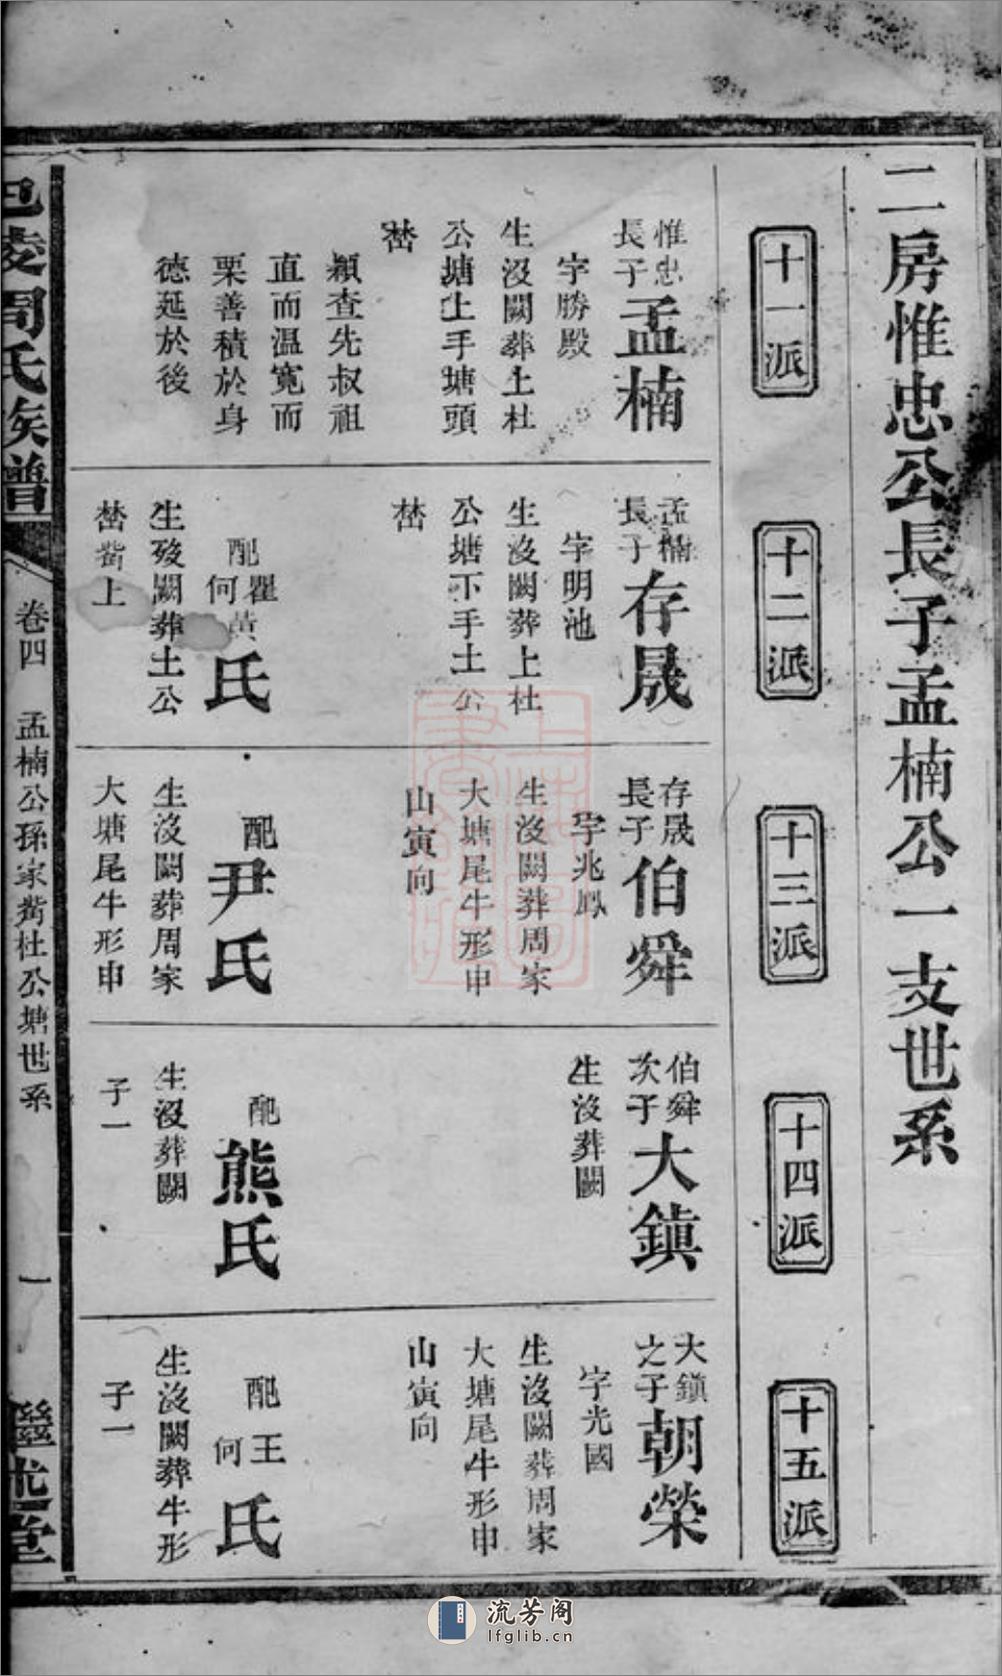 二房惟忠公長子孟楠公一支世系
十一派
十二派
十三派
十四派
十五派
惟忠
長子
孟楠
字勝殿
生沒闕葬土杜
公塘上手塘頭
嵆
穎查先叔祖
直而温寬而
栗善積於身
德延於後
孟楠
長子
存晟
字明池
生沒闕葬上杜
公塘下手土公
嵆
配
瞿黃
何
氏
生歿闕葬土公
嵆上
存晟
長子
伯舜
字兆鳳
生沒闕葬周家
大塘尾牛形申
山寅向
配
尹氏
生沒闕葬周家
大塘尾牛形申
伯舜
次子
大鎮
生沒葬闕
配
熊氏
生沒葬闕
子一
大鎮
之子
朝榮
字光國
生沒闕葬周家
大塘尾牛形申
山寅向
配
王
何
氏
生沒闕葬牛形
子一
巴陵周氏族譜
卷四
孟楠公孫家嘴杜公塘世系
一
繼述堂
流芳阁
lfglib.cn